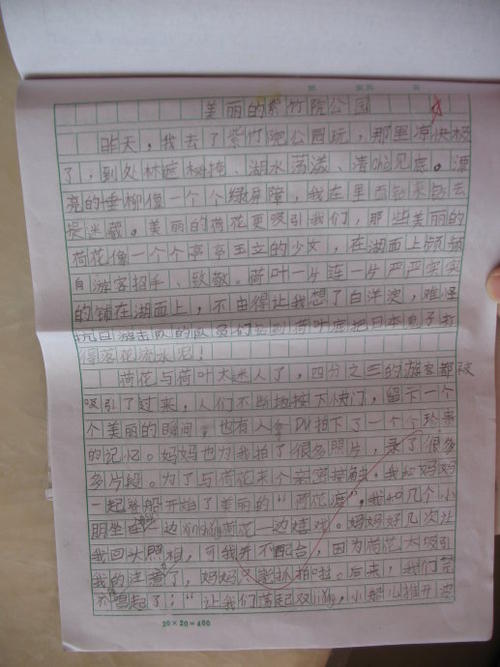 美丽的紫竹院公园
昨天，我去了紫竹院公园玩，那里凉快极
了，到处林遮树掩、湖水荡漾、清晰见底。漂
亮的垂柳像一个个绿屏障，我在里面钻来钻去
捉迷藏。美丽的荷花更吸引我们，那些美丽的
荷花像一个个亭亭玉立的少女，在湖面上频频
向游客招手、致敬。荷叶一片连一片严严实实
的铺在湖面上，不由得让我想了白洋淀，难怪
抗日游击队的队员们钻到荷叶底把日本鬼子打
得落花流水呢！
荷花与荷叶太迷人了，四分之三的游客都被
吸引了过来，人们不断地按下快门，留下一个
个美丽的瞬间，也有人拿DV拍下了一个个珍贵
的记忆。妈妈也为我拍了很多照片，录了很多
多片段。为了与荷花来个亲密接触，我和妈妈
一起坐船开始了美丽的“荷花渡”，我和几个小
朋坐在 边 荷花一边嬉戏。妈妈好几次让
我回头照相，可我并不配合，因为荷花太吸引
我的注意了，妈妈 抓拍啦。后来，我们
唱起了：“让我们荡起双 ，小船儿推开波
20×20=400